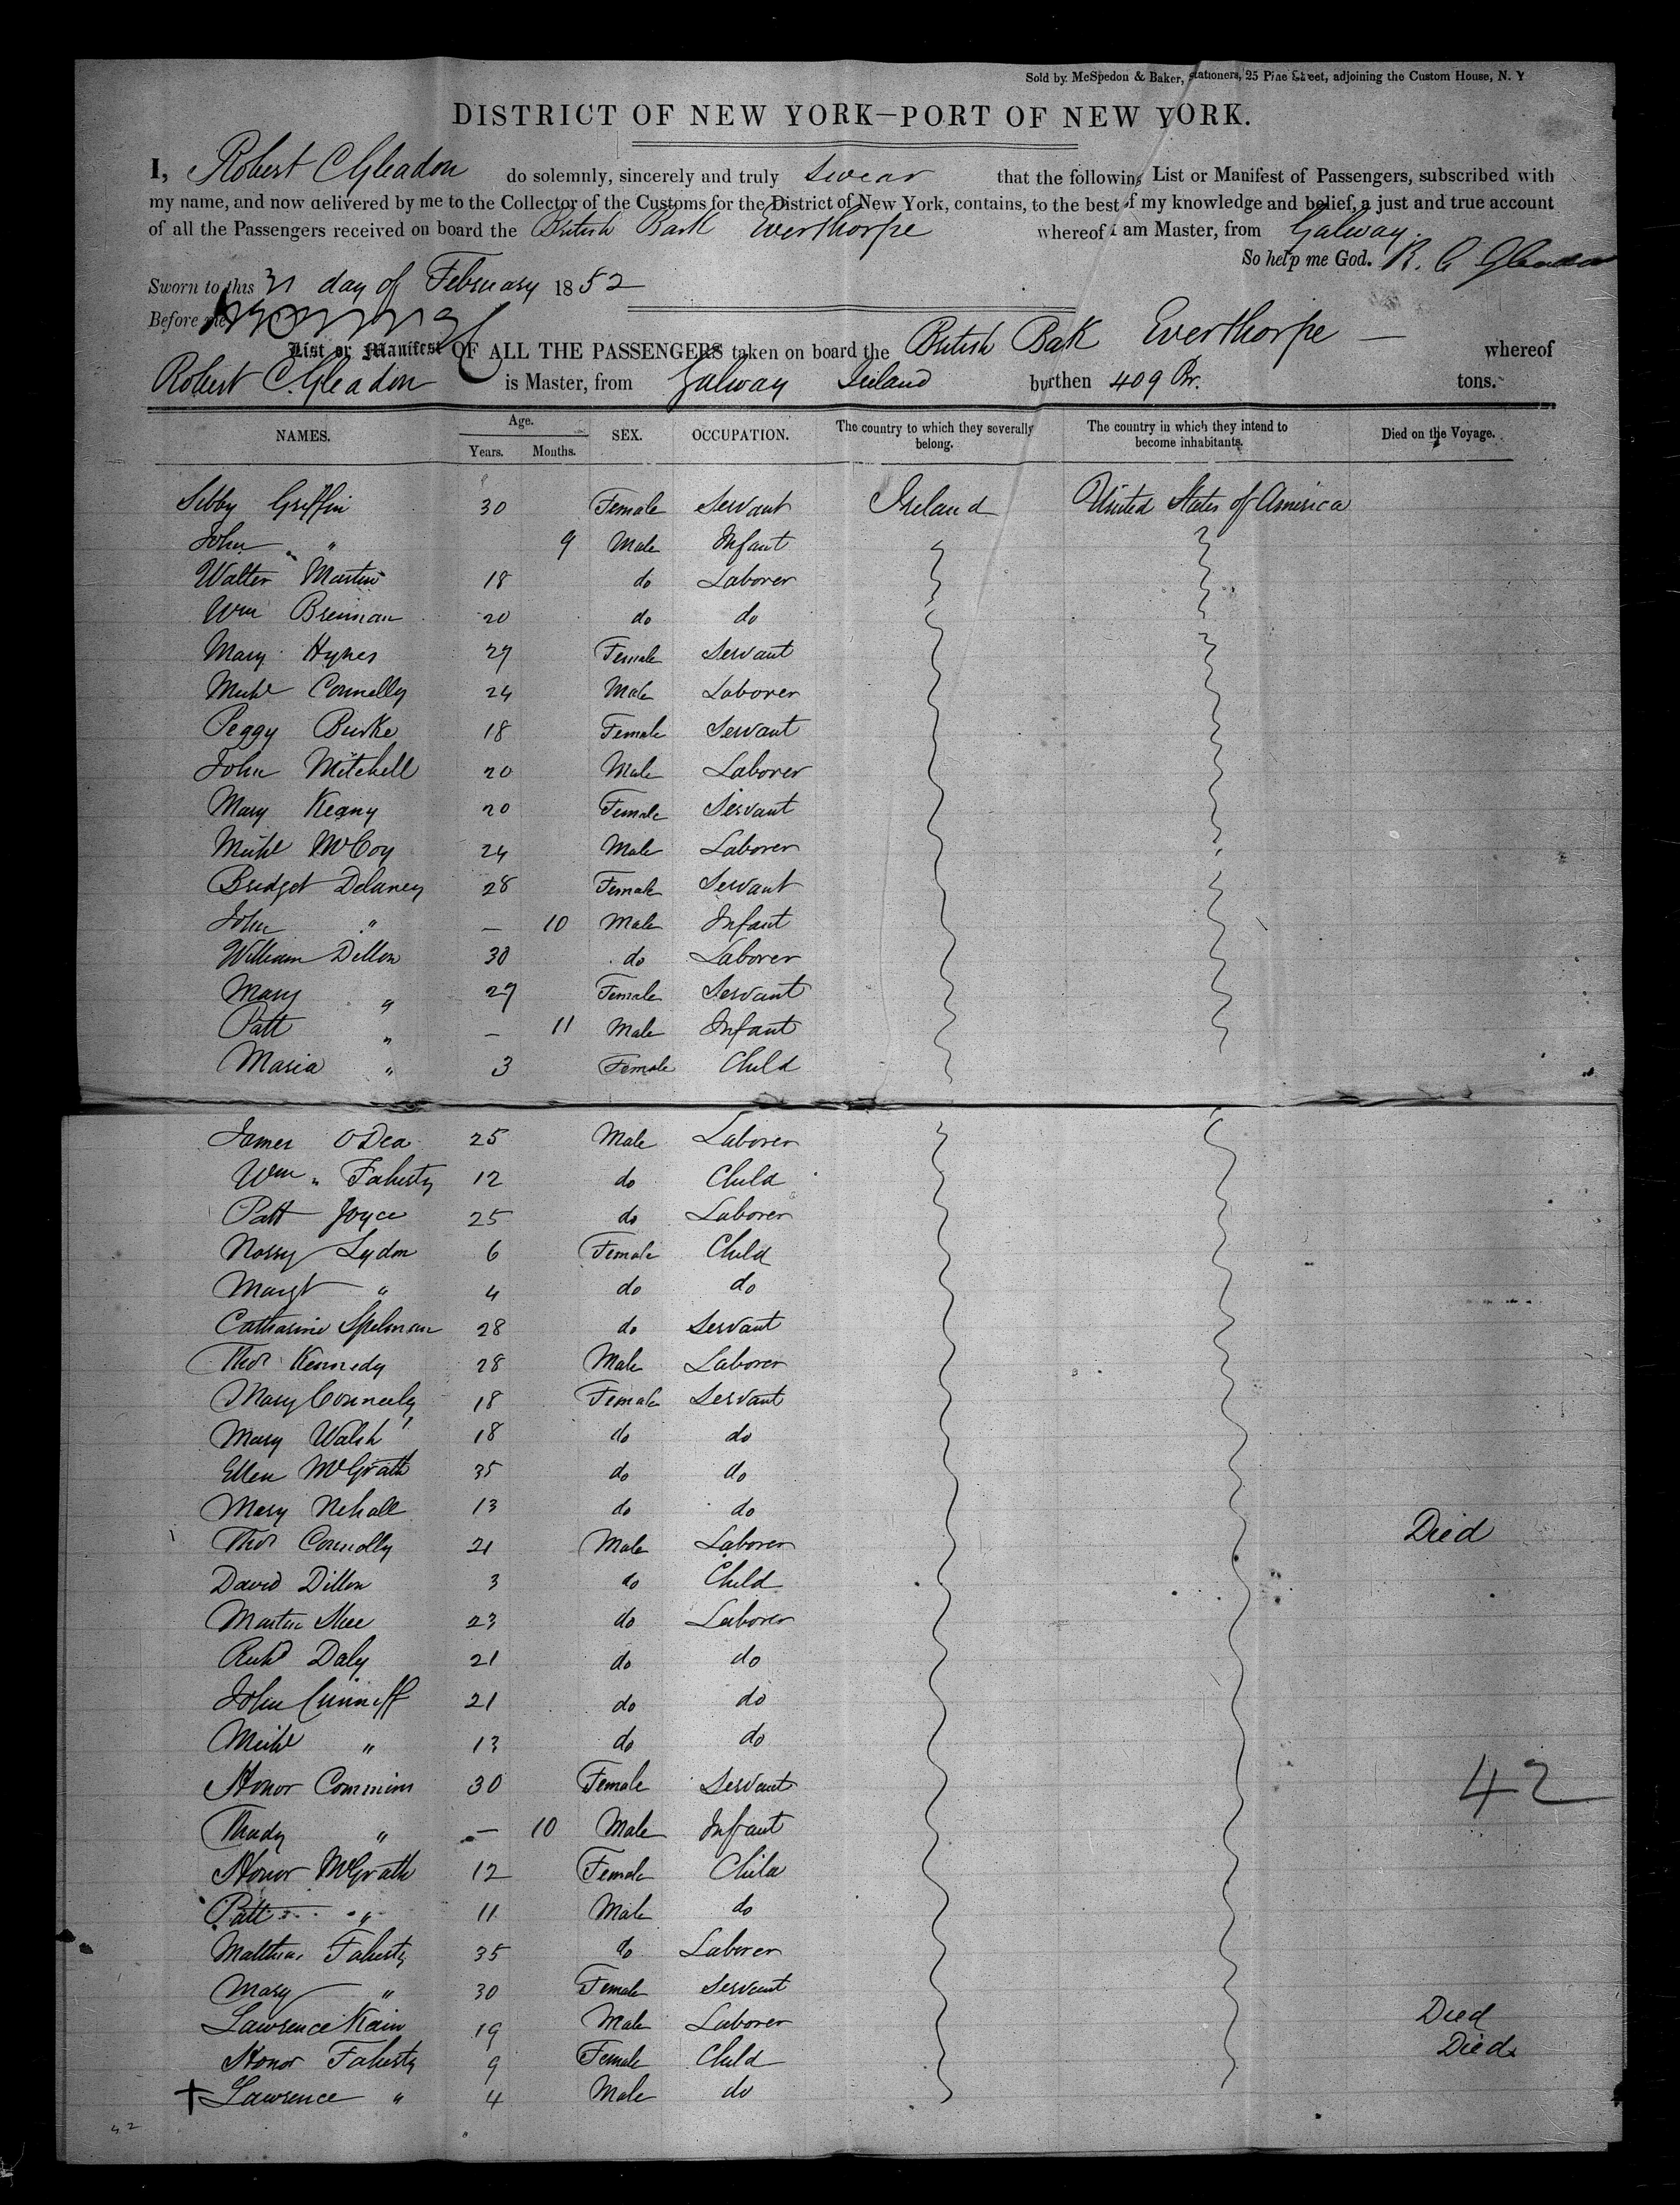 Sold by McSpedon & Baker, Stationers, 25 Pine Street, adjoining the Custom House, N. Y
DISTRICT OF NEW YORK—PORT OF NEW YORK.
I, Robert C Gleadon do solemnly, sincerely and truly swear that the following List or Manifest of Passengers, subscribed with
my name, and now delivered by me to the Collector of the Customs for the District of New York, contains, to the best of my knowledge and belief, a just and true account
of all the Passengers received on board the British Bark Everthorpe whereof I am Master, from Galway.
So help me God. R. C Gleadon
Sworn to this day of February 1852
Before me
List or Manifest OF ALL THE PASSENGERS taken on board the British Bak Everthorpe — whereof
Robert C. Gleadon is Master, from Galway Ireland burthen 409 Br. tons.
NAMES. Age. Years. Months. SEX. OCCUPATION. The country to which they severally belong. The country in which they intend to become inhabitants. Died on the Voyage.
Sibby Griffin 30 Female Servant Ireland United States of America
John " 9 Male Infant
Walter Martin 18 do Laborer
Wm Brennan 20 do do
Mary Hynes 29 Female Servant
Michl Connelly 24 Male Laborer
Peggy Burke 18 Female Servant
John Mitchell 20 Male Laborer
Mary Keany 20 Female Servant
Michl McCoy 24 Male Laborer
Bridget Delaney 28 Female Servant
John " — 10 Male Infant
William Dillon 30 do Laborer
Mary " 29 Female Servant
Patt " — 11 Male Infant
Maria " 3 Female Child
James ODea 25 Male Laborer
Wm " Faherty 12 do Child
Patt Joyce 25 do Laborer
Norry Lydon 6 Female Child
Margt " 4 do do
Catharine Spelman 28 do Servant
Thos Kennedy 28 Male Laborer
Mary Conneely 18 Female Servant
Mary Walsh 18 do do
Ellen McGrath 35 do do
Mary Nehall 13 do do
Thos Connolly 21 Male Laborer Died
David Dillon 3 do Child
Martin Shee 23 do Laborer
Richd Daly 21 do do
John Cunniff 21 do do
Michl " 13 do do
Honor Commins 30 Female Servant
42
Thady " — 10 Male Infant
Honor McGrath 12 Female Child
Patt " 11 Male do
Matthias Faherty 35 do Laborer
Mary " 30 Female Servant
Lawrence Kain 19 Male Laborer Died
Honor Faherty 9 Female Child Died
+ Lawrence " 4 Male do
42